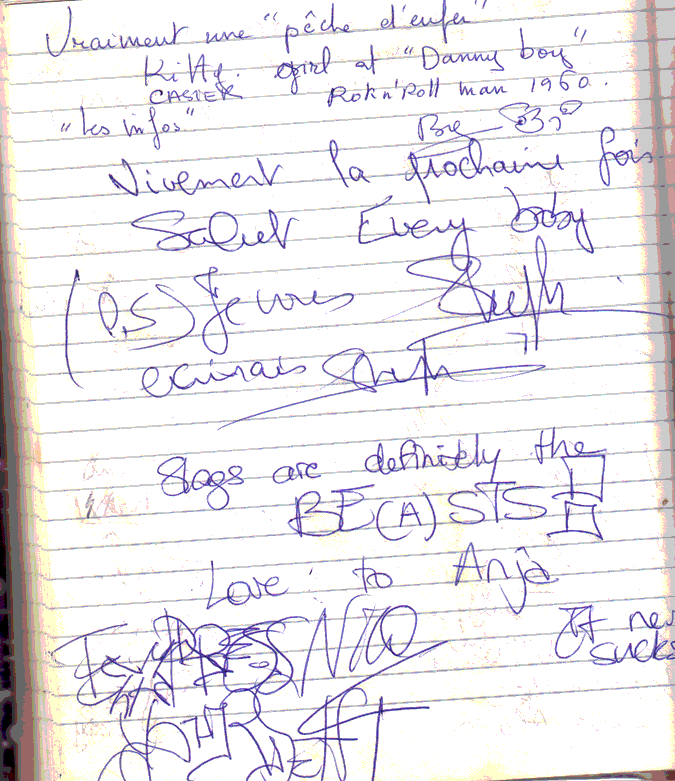 Vraiment une "pêche d'enfer"
Kitty. girl at "Danny boy"
CASIER Rok n' Roll man 1960.
"Les infos"
Vivement la prochaine fois
Salut Every body
(P.S) Je vous Steph
ecrirais Steph
Slags are definitely the
BE(A)STS!!
Love: to Anja
It nev
sucks